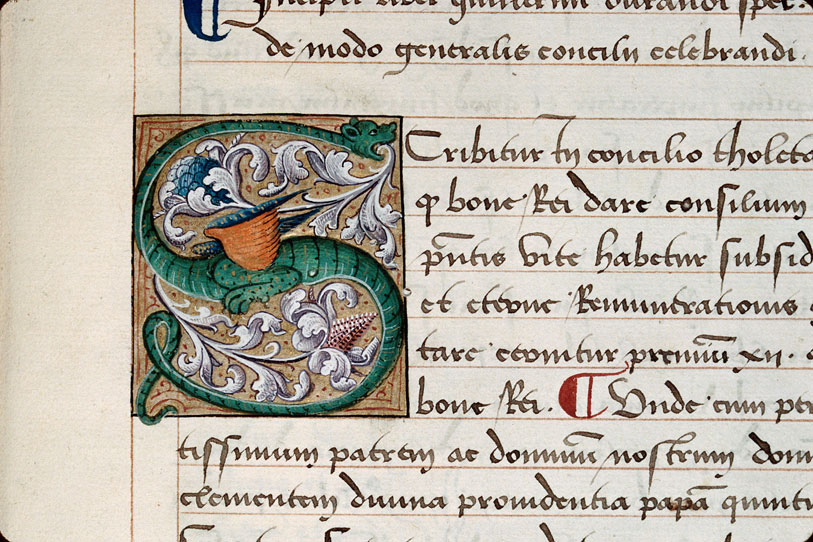 Incipit liber guillermi durandi spec.
de modo generalis concilii celebrandi.
Scribitur In concilio tholeta
ꝙ bone Rei dare consilium
p̄ntis vite habetur subsid
et eterne Remunerationis
tare cernitur premiū xii.
bone Rei. ¶ Vnde cum
tissimum patrem ac dominū nostrum dom
clementem diuina prouidentia papā quintu